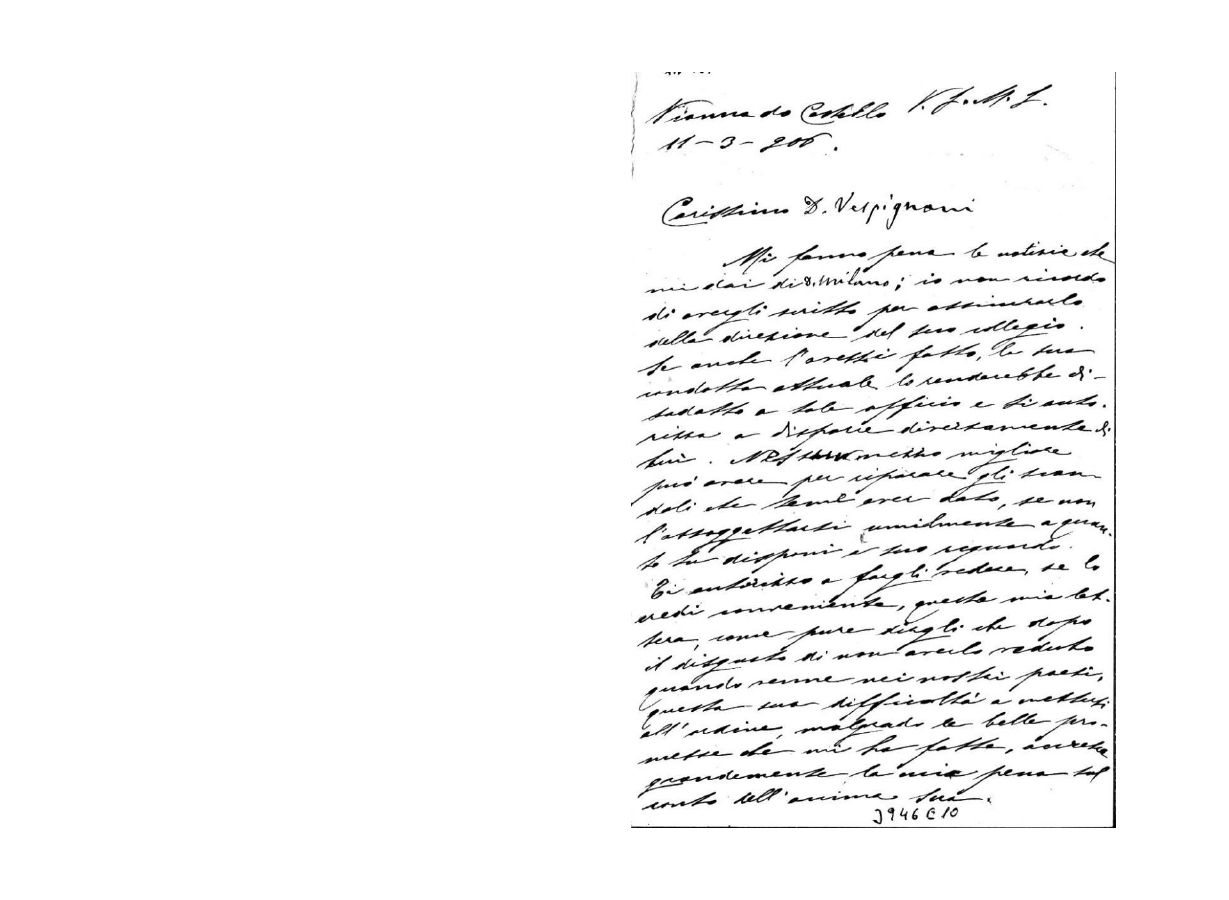 Vianna do Castello V. G. M. G.
11-3-906.
Carissimo D. Vespignani
Mi fanno pena le notizie che
mi dai di D. Milano; io non ricordo
di avergli scritto per assicurarlo
della direzione del suo collegio.
Se anche l'avessi fatto, la sua
condotta attuale lo renderebbe di-
sadatto a tale officio e ti auto-
rizzo a disporre direttamente di
lui. Nessun mezzo migliore
può avere per riparare gli scan-
doli che teme aver dato, se non
l'assoggettarsi umilmente a quan-
to tu disponi a suo riguardo.
Ti autorizzo a fargli vedere, se lo
credi conveniente, questa mia let-
tera, come pure dirgli che dopo
il disgusto di non averlo veduto
quando venne nei nostri paesi,
questa sua difficoltà a mettersi
all'ordine, malgrado le belle pro-
messe che mi ha fatte, accresce
grandemente la mia pena sul
conto dell'anima sua.
3946 C 10